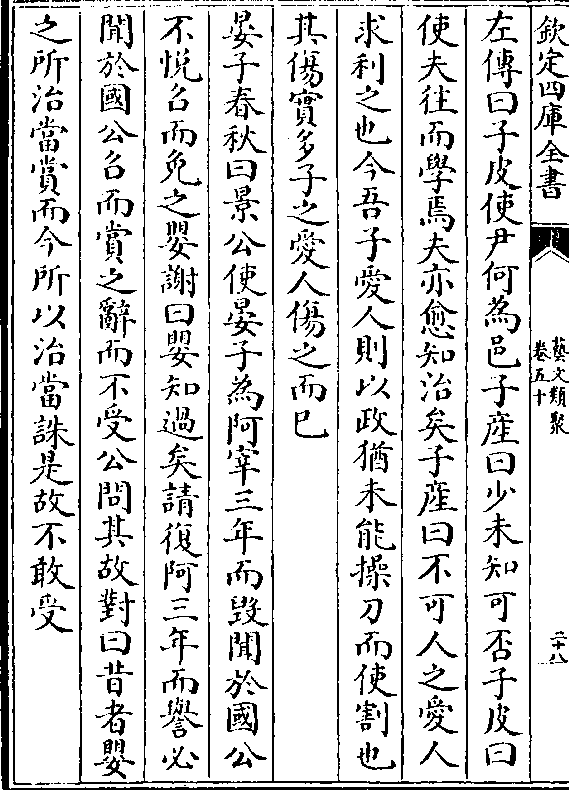 欽定四庫全書
藝文類聚
卷五十
二十八
左傳曰子皮使尹何為邑子產曰少未知可否子皮曰
使夫往而學焉夫亦愈知治矣子產曰不可人之愛人
求利之也今吾子愛人則以政猶未能操刀而使割也
其傷實多子之愛人傷之而已
晏子春秋曰景公使晏子為阿宰三年而毀聞於國公
不悅召而免之嬰謝曰嬰知過矣請復阿三年而譽必
聞於國公召而賞之辭而不受公問其故對曰昔者嬰
之所治當賞而今所以治當誅是故不敢受